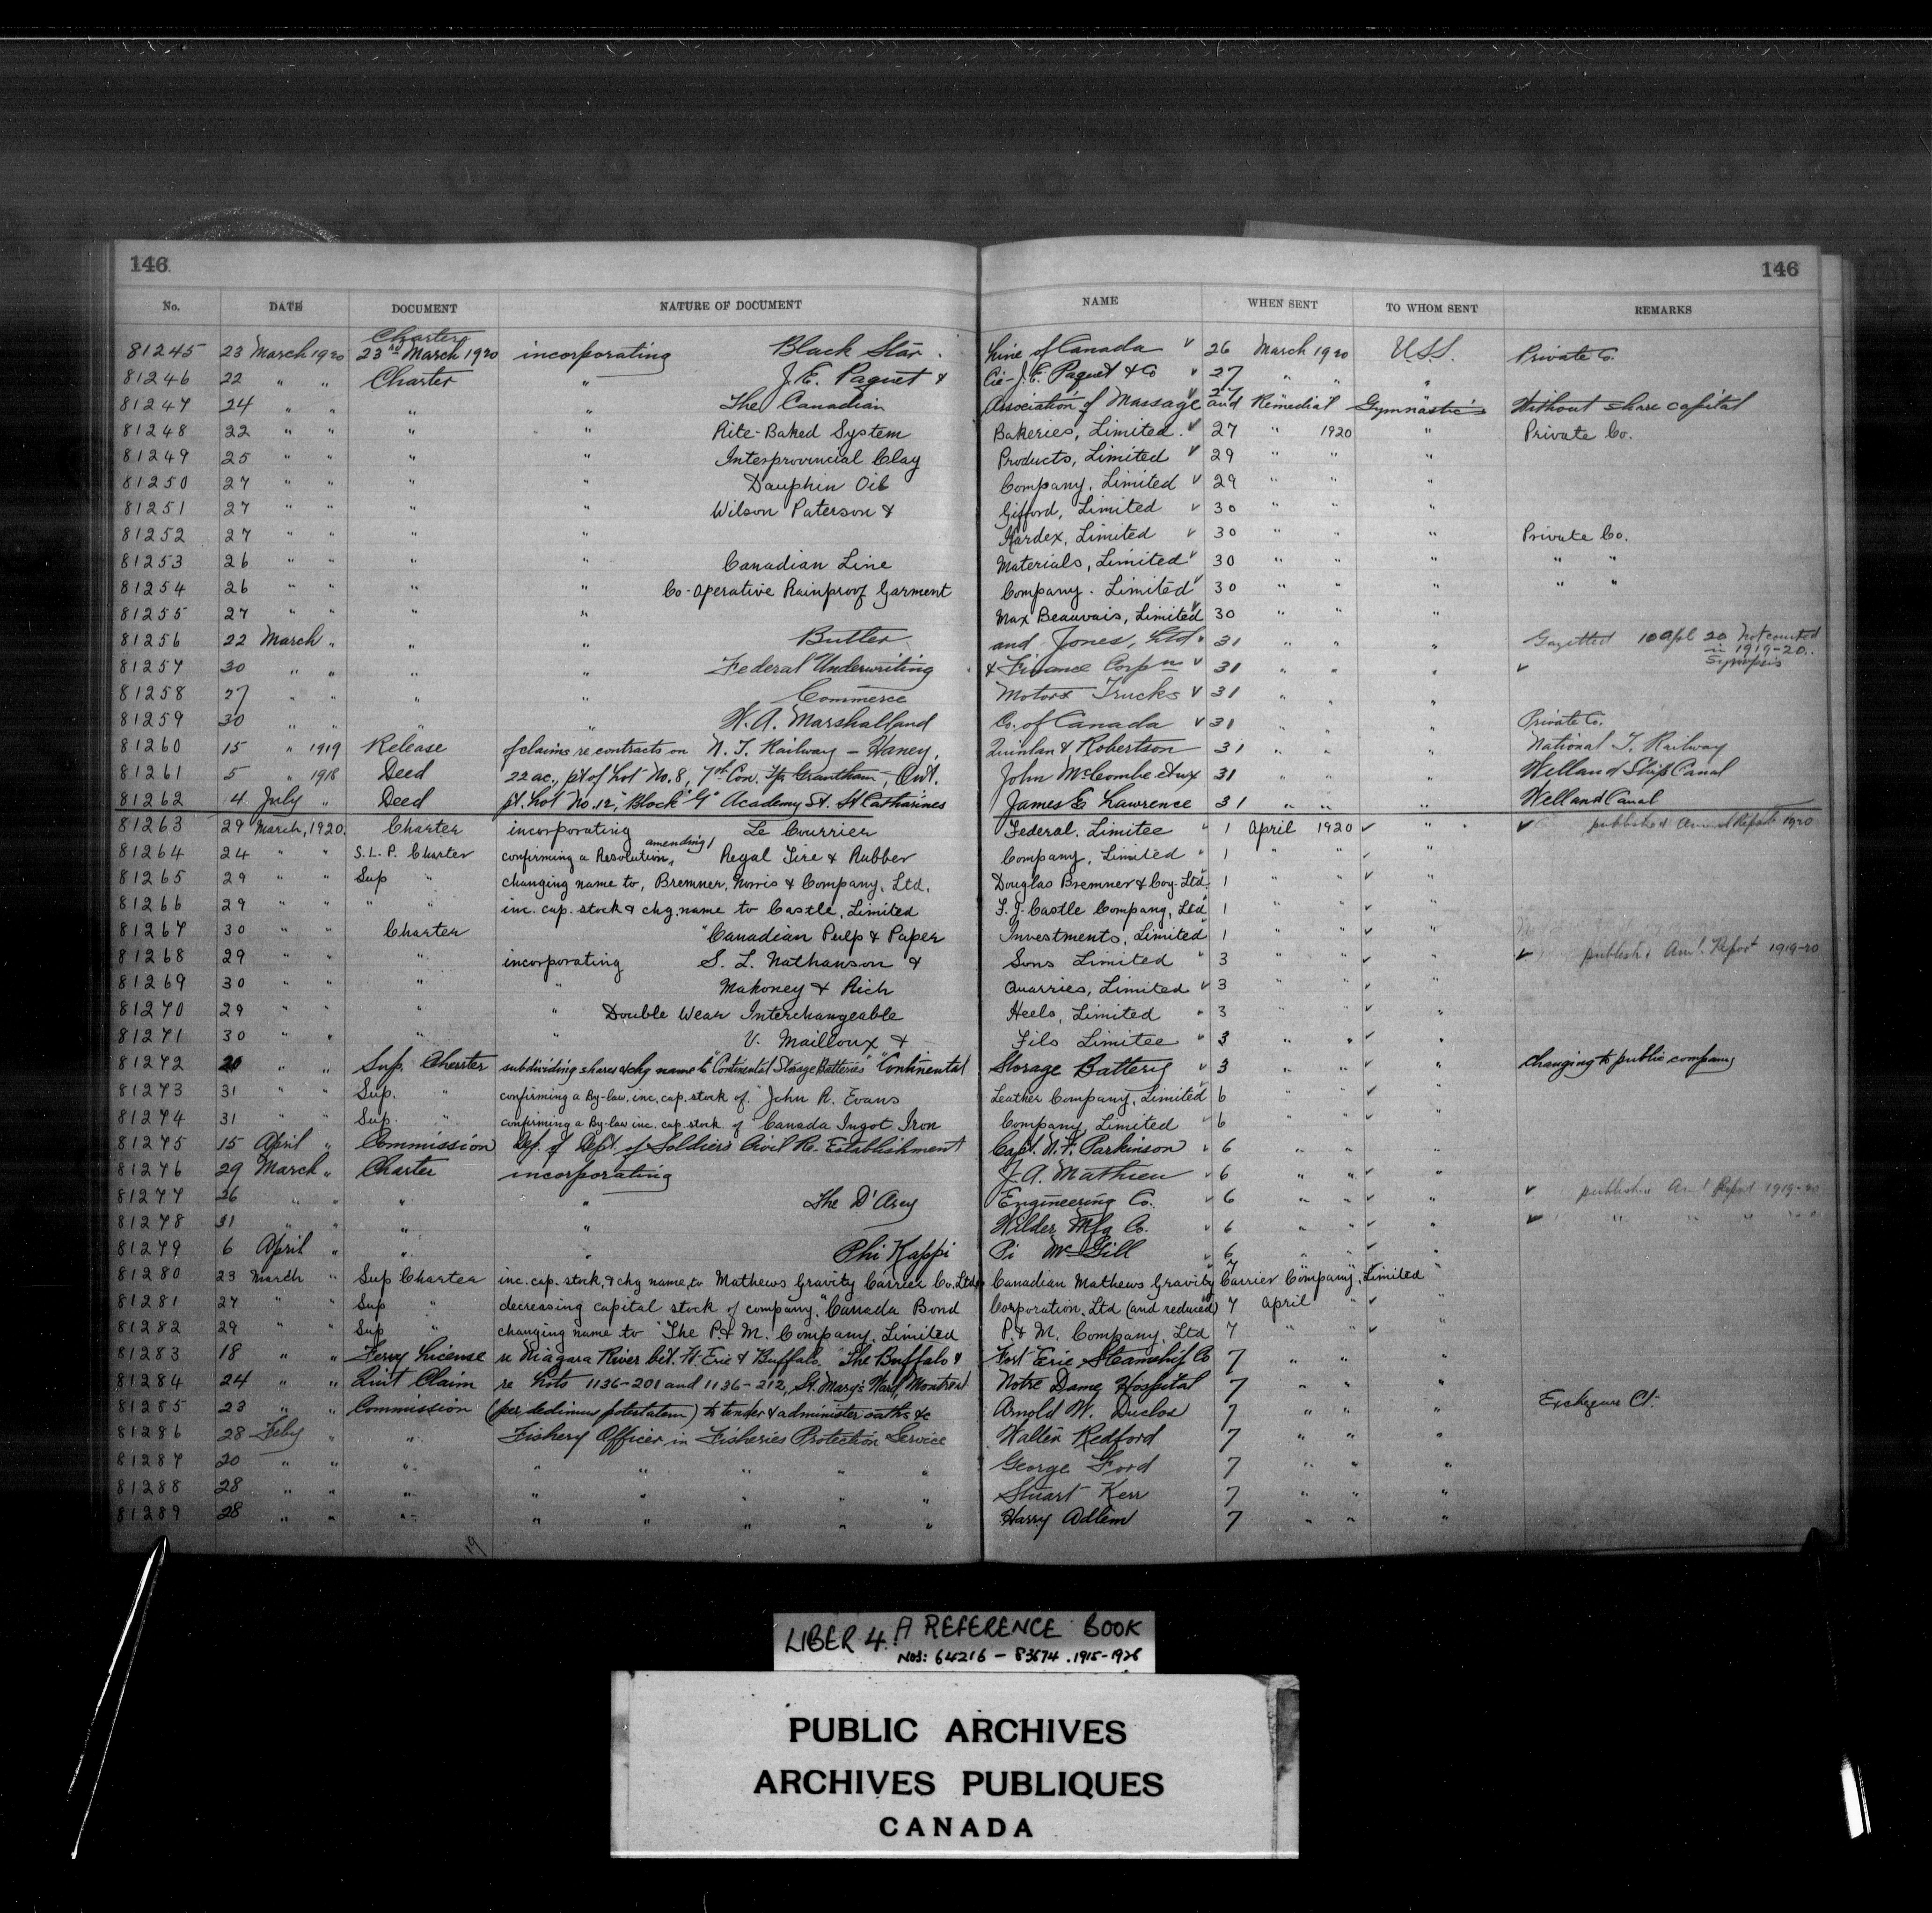 146 146
No. DATE DOCUMENT NATURE OF DOCUMENT NAME WHEN SENT TO WHOM SENT REMARKS
Charter
81245 23 March 1920 23rd March 1920 incorporating Black Star Line of Canada ✓ 26 March 1920 U.S.S. Private Co.
81246 22 " " Charter " J. E. Paquet & Cie - J. E. Paquet & Co ✓ 27 " " "
81247 24 " " " " The Canadian Association of Massage and Remedial Gymnastics ✓ 27 " Without share capital
81248 22 " " " " Rite-Baked System Bakeries, Limited. ✓ 27 " 1920 " Private Co.
81249 25 " " " " Interprovincial Clay Products, Limited ✓ 29 " " "
81250 27 " " " " Dauphin Oil Company, Limited ✓ 29 " " "
81251 27 " " " " Wilson Paterson & Gifford, Limited ✓ 30 " " "
81252 27 " " " " Kardex, Limited ✓ 30 " " " Private Co.
81253 26 " " " " Canadian Line Materials, Limited ✓ 30 " " " " "
81254 26 " " " " Co-operative Rainproof Garment Company. Limited ✓ 30 " " " " "
81255 27 " " " " Max Beauvais, Limited ✓ 30 " " "
81256 22 March " " " Butler and Jones, Ltd. 31 " " " Gazetted 10 Apl 20 Not counted
in 1919-20.
Synopsis
81257 30 " " " " Federal Underwriting & Finance Corpn ✓ 31 " " " ✓
81258 27 " " " " Commerce Motors Trucks ✓ 31 " " "
81259 30 " " " " W. A. Marshall and Co. of Canada ✓ 31 " " " Private Co.
81260 15 " 1919 Release of claims re contracts on N. T. Railway - Haney, Quinlan & Robertson 31 " " " National T. Railway
81261 5 " 1918 Deed 22 ac., pt of Lot No. 8, 7th Con. Tp Grantham, Ont. John McCombe et ux 31 " " " Welland Ship Canal
81262 4 July " Deed pt. Lot No. 12, Block "G" Academy St. St Catharines James E Lawrence 31 " " " Welland Canal
81263 29 March, 1920. Charter incorporating Le Courrier Federal. Limitee " 1 April 1920 ✓ " ✓ published Annual Report 1920
amending
81264 24 " " S.L.P. Charter confirming a Resolution, Regal Tire & Rubber Company, Limited " 1 " " ✓ "
81265 29 " " Sup " changing name to, Bremner, Norris & Company, Ltd. Douglas Bremner & Coy. Ltd. 1 " " ✓ "
81266 29 " " " " inc. cap. stock & chg. name to Castle, Limited T. J. Castle Company, Ltd 1 " " ✓ "
81267 30 " " Charter "Canadian Pulp & Paper Investments, Limited" 1 " " ✓ "
81268 29 " " " incorporating S. L. Nathanson & Sons Limited " 3 " " ✓ " ✓ published Anl. Report 1919-20
81269 30 " " " " Mahoney & Rich Quarries, Limited ✓ 3 " " ✓ "
81270 29 " " " " Double Wear Interchangeable Heels, Limited " 3 " " ✓ "
81271 30 " " " " V. Mailloux & Fils Limitee " 3 " " ✓ "
81272 " " Sup. Charter subdividing shares & chg name to "Continental Storage Batteries" "Continental Storage Battery ✓ 3 " " ✓ " changing to public company
81273 31 " " Sup. " confirming a By-law, inc. cap. stock of "John R. Evans Leather Company, Limited 6 " " ✓ "
81274 31 " " Sup. " confirming a By-law inc. cap. stock of "Canada Ingot Iron Company, Limited ✓ 6 " " ✓ "
81275 15 April " Commission Dep. of Dept. of Soldiers Civil Re-Establishment Capt. N. F. Parkinson ✓ 6 " " "
81276 29 March " Charter incorporating J. A. Mathieu ✓ 6 " " ✓ "
81277 26 " " " " The D'Arcy Engineering Co. ✓ 6 " " ✓ " ✓ published Anl Report 1919-20
81278 31 " " " " Wilder Mfg Co. ✓ 6 " " ✓ " ✓ " " " "
81279 6 April " " " Phi Kappi Pi McGill ✓ 6 " " ✓ "
81280 23 March " Sup Charter inc. cap. stock, & chg name, to Mathews Gravity Carrier Co. Ltd, Canadian Mathews Gravity Carrier Company, Limited 7 " " "
81281 27 " " Sup " decreasing capital stock of company, "Canada Bond Corporation, Ltd (and reduced) 7 April " ✓ "
81282 29 " " Sup " changing name to "The P. & M. Company, Limited P. & M. Company, Ltd 7 " " ✓ "
81283 18 " " Ferry License re Niagara River bet. Ft. Erie & Buffalo. The Buffalo & Fort Erie Steamship Co 7 " " "
81284 24 " " Quit Claim re Lots 1136-201 and 1136-212, St. Mary's Ward, Montreal Notre Dame Hospital 7 " " "
81285 23 " " Commission (per dedimus potestatem) to tender & administer oaths &c Arnold W. Duclos 7 " " " Exchequer Ct.
81286 28 Feby " " Fishery Officer in Fisheries Protection Service Walter Redford 7 " " "
81287 20 " " " " " " " " George Ford 7 " " "
81288 28 " " " " " " " " Stuart Kerr 7 " " "
81289 28 " " " " " " " " Harry Adlem 7 " " "
19
LIBER 4. A REFERENCE BOOK
Nos: 64216 - 83674. 1915-1926
PUBLIC ARCHIVES
ARCHIVES PUBLIQUES
CANADA